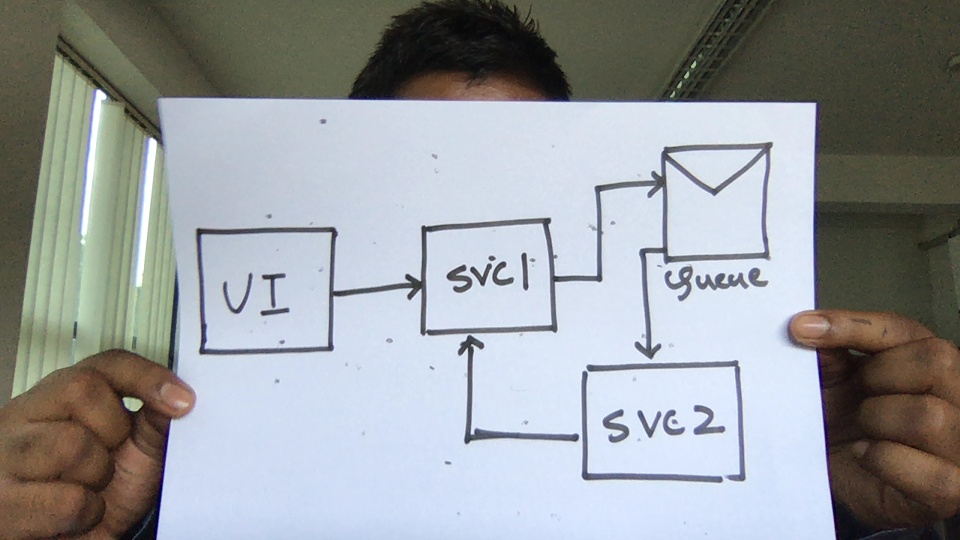 UI
SVC1
Queue
SVC2